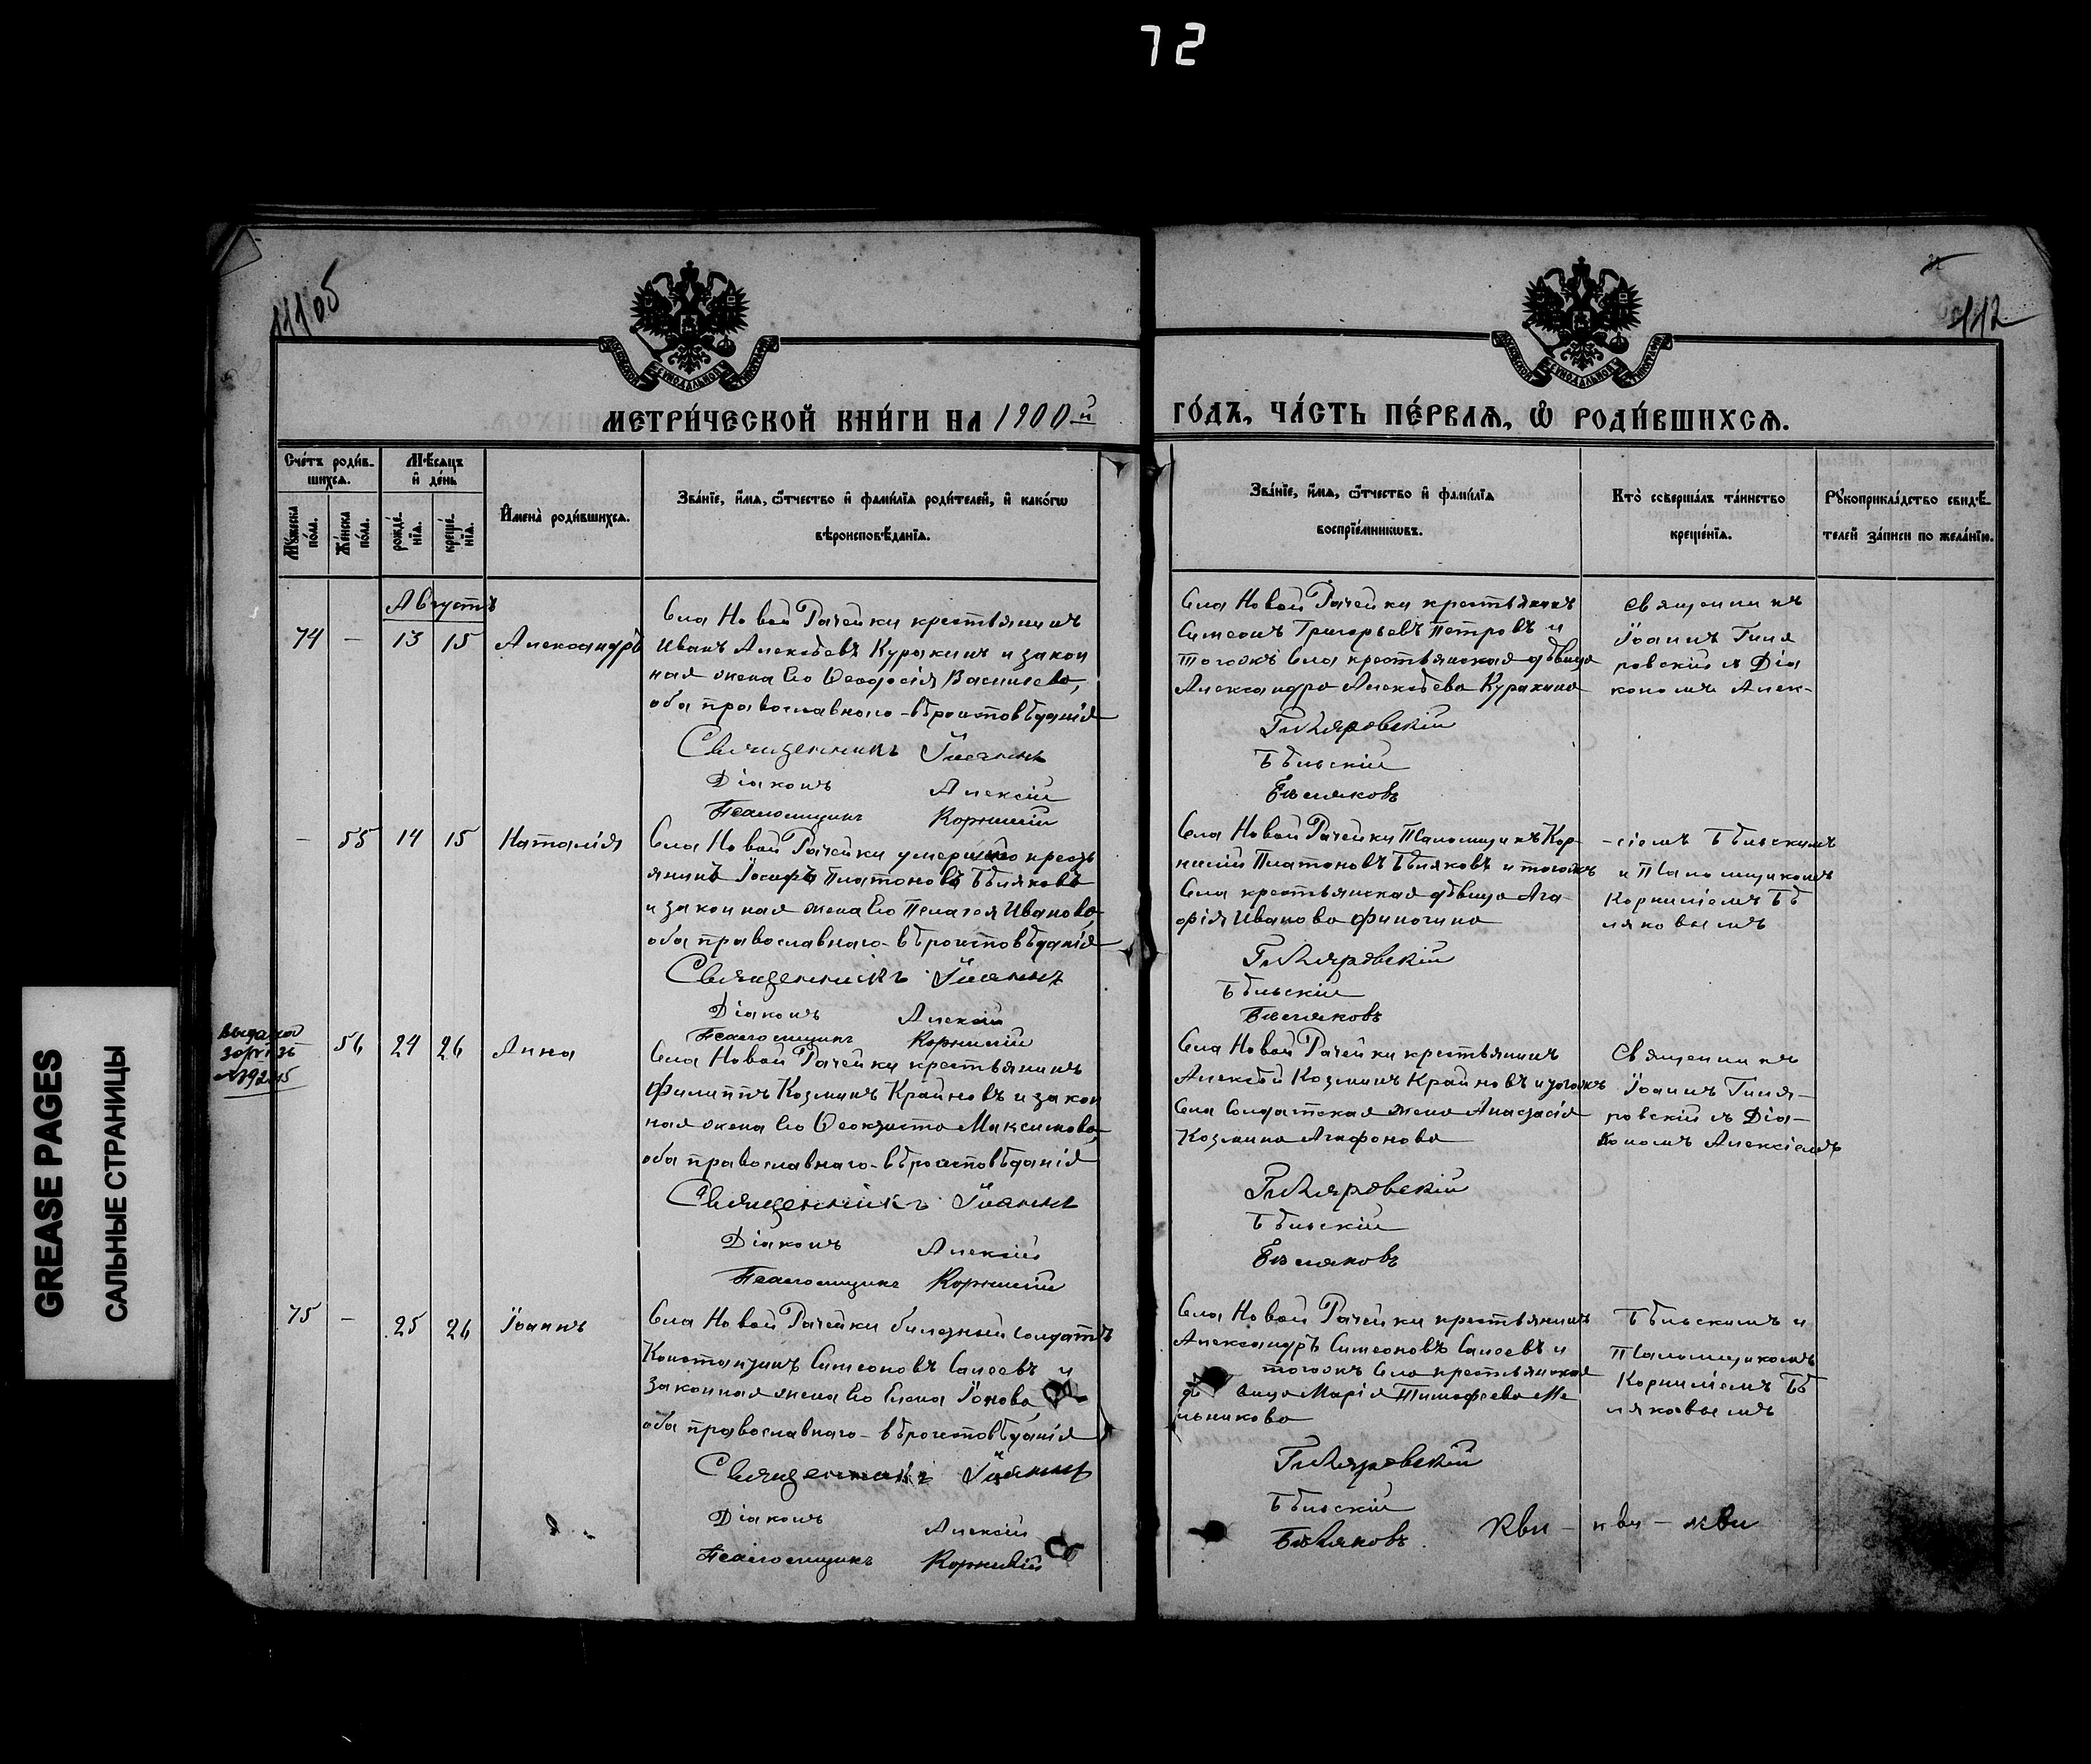 72
112
МЕТРИ́ЧЕСКОЙ КНИ́ГИ НА 1900й
ГО́ДЪ, ЧА́СТЬ ПЕ́РВАѦ, Ѡ҆ РОДИ́ВШИХСѦ.
Сче́тъ роди́в-
шихсѧ.
Мѣсѧцъ
и҆ де́нь
Мꙋ́жеска
по́ла.
Же́нска
по́ла.
рожде́-
нїѧ.
креще́-
нїѧ.
И҆мена̀ роди́вшихсѧ.
Зва́нїе, и҆́мѧ, ѻ҆́тчество и҆ фами́лїѧ роди́телей, и҆ како́гѡ
вѣроисповѣ́данїѧ.
Зва́нїе, и҆́мѧ, ѻ҆́тчество и҆ фами́лїѧ
воспрїе́мникѡвъ.
Кто̀ соверша́лъ та́инство
креще́нїѧ.
Рꙋкоприкла́дство свидѣ́-
телей за́писи по жела́нїю.
Августъ
74 — 13 15 Александръ
Села Новой Рачейки крестьянинъ
Иванъ Алексѣевъ Куракинъ и закон
ная жена его Ѳеодосія Васильева,
оба православнаго-вѣроисповѣданія
Священникъ Іоаннъ
Діаконъ Алексій
Псаломщикъ Корнилій
Села Новой Рачейки крестьянинъ
Симеонъ Григорьевъ Петровъ и
тогожъ села крестьянская дѣвица
Александра Алексѣева Куракина
Гиляровскій
Бѣльскій
Бѣляковъ
Священникъ
Іоаннъ Гиля
ровскій съ Діа
кономъ Алек-
— 55 14 15 Наталія
Села Новой Рачейки умершаго кресть
янинъ Іосифъ Платоновъ Бѣляковъ
и законная жена его Пелагея Иванова
оба православнаго-вѣроисповѣданія
Священникъ Іоаннъ
Діаконъ Алексій
Псаломщикъ Корнилій
Села Новой Рачейки Псаломщикъ Кор-
нилій Платоновъ Бѣляковъ и тогожъ
села крестьянская дѣвица Ага-
фія Иванова Финогина
Гиляровскій
Бѣльскій
Бѣляковъ
-сіемъ Бѣльскимъ
и Псаломщикомъ
Корниліемъ Бѣ
ляковымъ
56 24 26 Анна
Села Новой Рачейки крестьянинъ
Филиппъ Козминъ Крайновъ и закон
ная жена его Ѳеоктиста Максимова,
оба православнаго-вѣроисповѣданія
Священникъ Іоаннъ
Діаконъ Алексій
Псаломщикъ Корнилій
Села Новой Рачейки крестьянинъ
Алексѣй Козминъ Крайновъ и тогожъ
села солдатская жена Анастасія
Козмина Агафонова
Гиляровскій
Бѣльскій
Бѣляковъ
Священникъ
Іоаннъ Гиля-
ровскій съ Діа-
кономъ Алексіемъ
75 — 25 26 Іоаннъ
Села Новой Рачейки билетный солдатъ
Константинъ Симеоновъ Салеевъ и
законная жена его Елена Іонова
оба православнаго-вѣроисповѣданія
Священникъ Іоаннъ
Діаконъ Алексій
Псаломщикъ Корнилій
Села Новой Рачейки крестьянинъ
Александръ Симеоновъ Салеевъ и
тогожъ села крестьянская
дѣвица Марія Тимофеева Ме
льникова
Гиляровскій
Бѣльскій
Бѣляковъ
Бѣльскимъ и
Псаломщикомъ
Корниліемъ Бѣ
ляковымъ
GREASE PAGES
САЛЬНЫЕ СТРАНИЦЫ